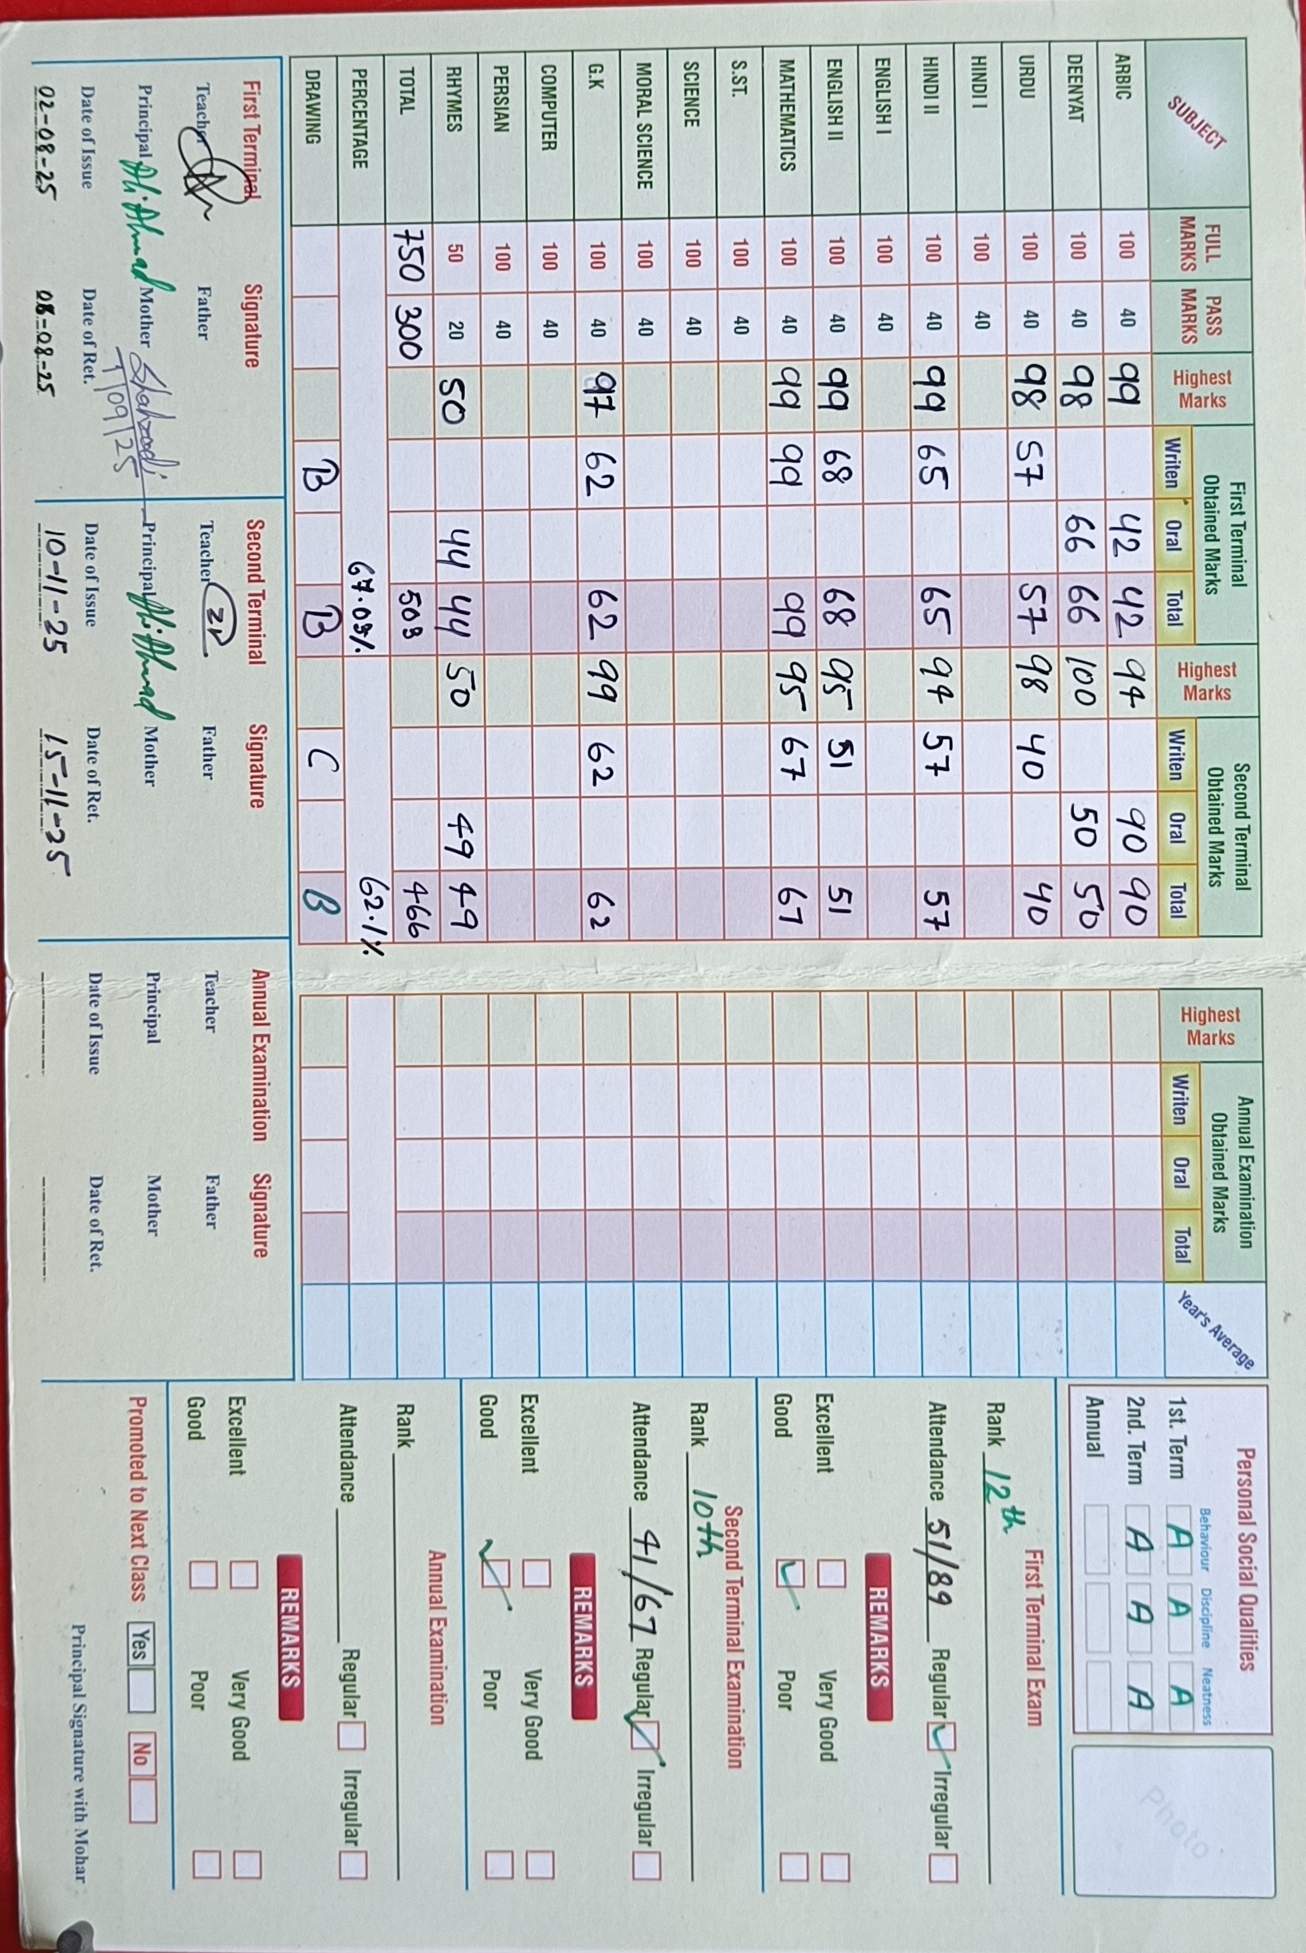 SUBJECT FULL MARKS PASS MARKS Highest Marks First Terminal Obtained Marks Writen Oral Total Highest Marks Second Terminal Obtained Marks Writen Oral Total Highest Marks Annual Examination Obtained Marks Writen Oral Total Year's Average
ARBIC 100 40 99 42 42 94 90 90
DEENYAT 100 40 98 66 66 100 50 50
URDU 100 40 98 57 57 98 40 40
HINDI I 100 40
HINDI II 100 40 99 65 65 94 57 57
ENGLISH I 100 40
ENGLISH II 100 40 99 68 68 95 51 51
MATHEMATICS 100 40 99 99 99 95 67 67
S.ST. 100 40
SCIENCE 100 40
MORAL SCIENCE 100 40
G.K 100 40 97 62 62 99 62 62
COMPUTER 100 40
PERSIAN 100 40
RHYMES 50 20 50 44 44 50 49 49
TOTAL 750 300 503 466
PERCENTAGE 67.05% 62.1%
DRAWING B B C B
First Terminal Signature
Teacher Father
Principal Ali Ahmad Mother Shahzadi
7/09/25
Date of Issue Date of Ret.
02-08-25 08-08-25
Second Terminal Signature
Teacher Father
Principal Ali Ahmad Mother
Date of Issue Date of Ret.
10-11-25 15-11-25
Annual Examination Signature
Teacher Father
Principal Mother
Date of Issue Date of Ret.
Personal Social Qualities
Behaviour Discipline Neatness
1st. Term A A A
2nd. Term A A A
Annual
Photo
First Terminal Exam
Rank 12th
Attendance 51/89 Regular Irregular
REMARKS
Excellent Very Good
Good Poor
Second Terminal Examination
Rank 10th
Attendance 41/67 Regular Irregular
REMARKS
Excellent Very Good
Good Poor
Annual Examination
Rank
Attendance Regular Irregular
REMARKS
Excellent Very Good
Good Poor
Promoted to Next Class Yes No
Principal Signature with Mohar